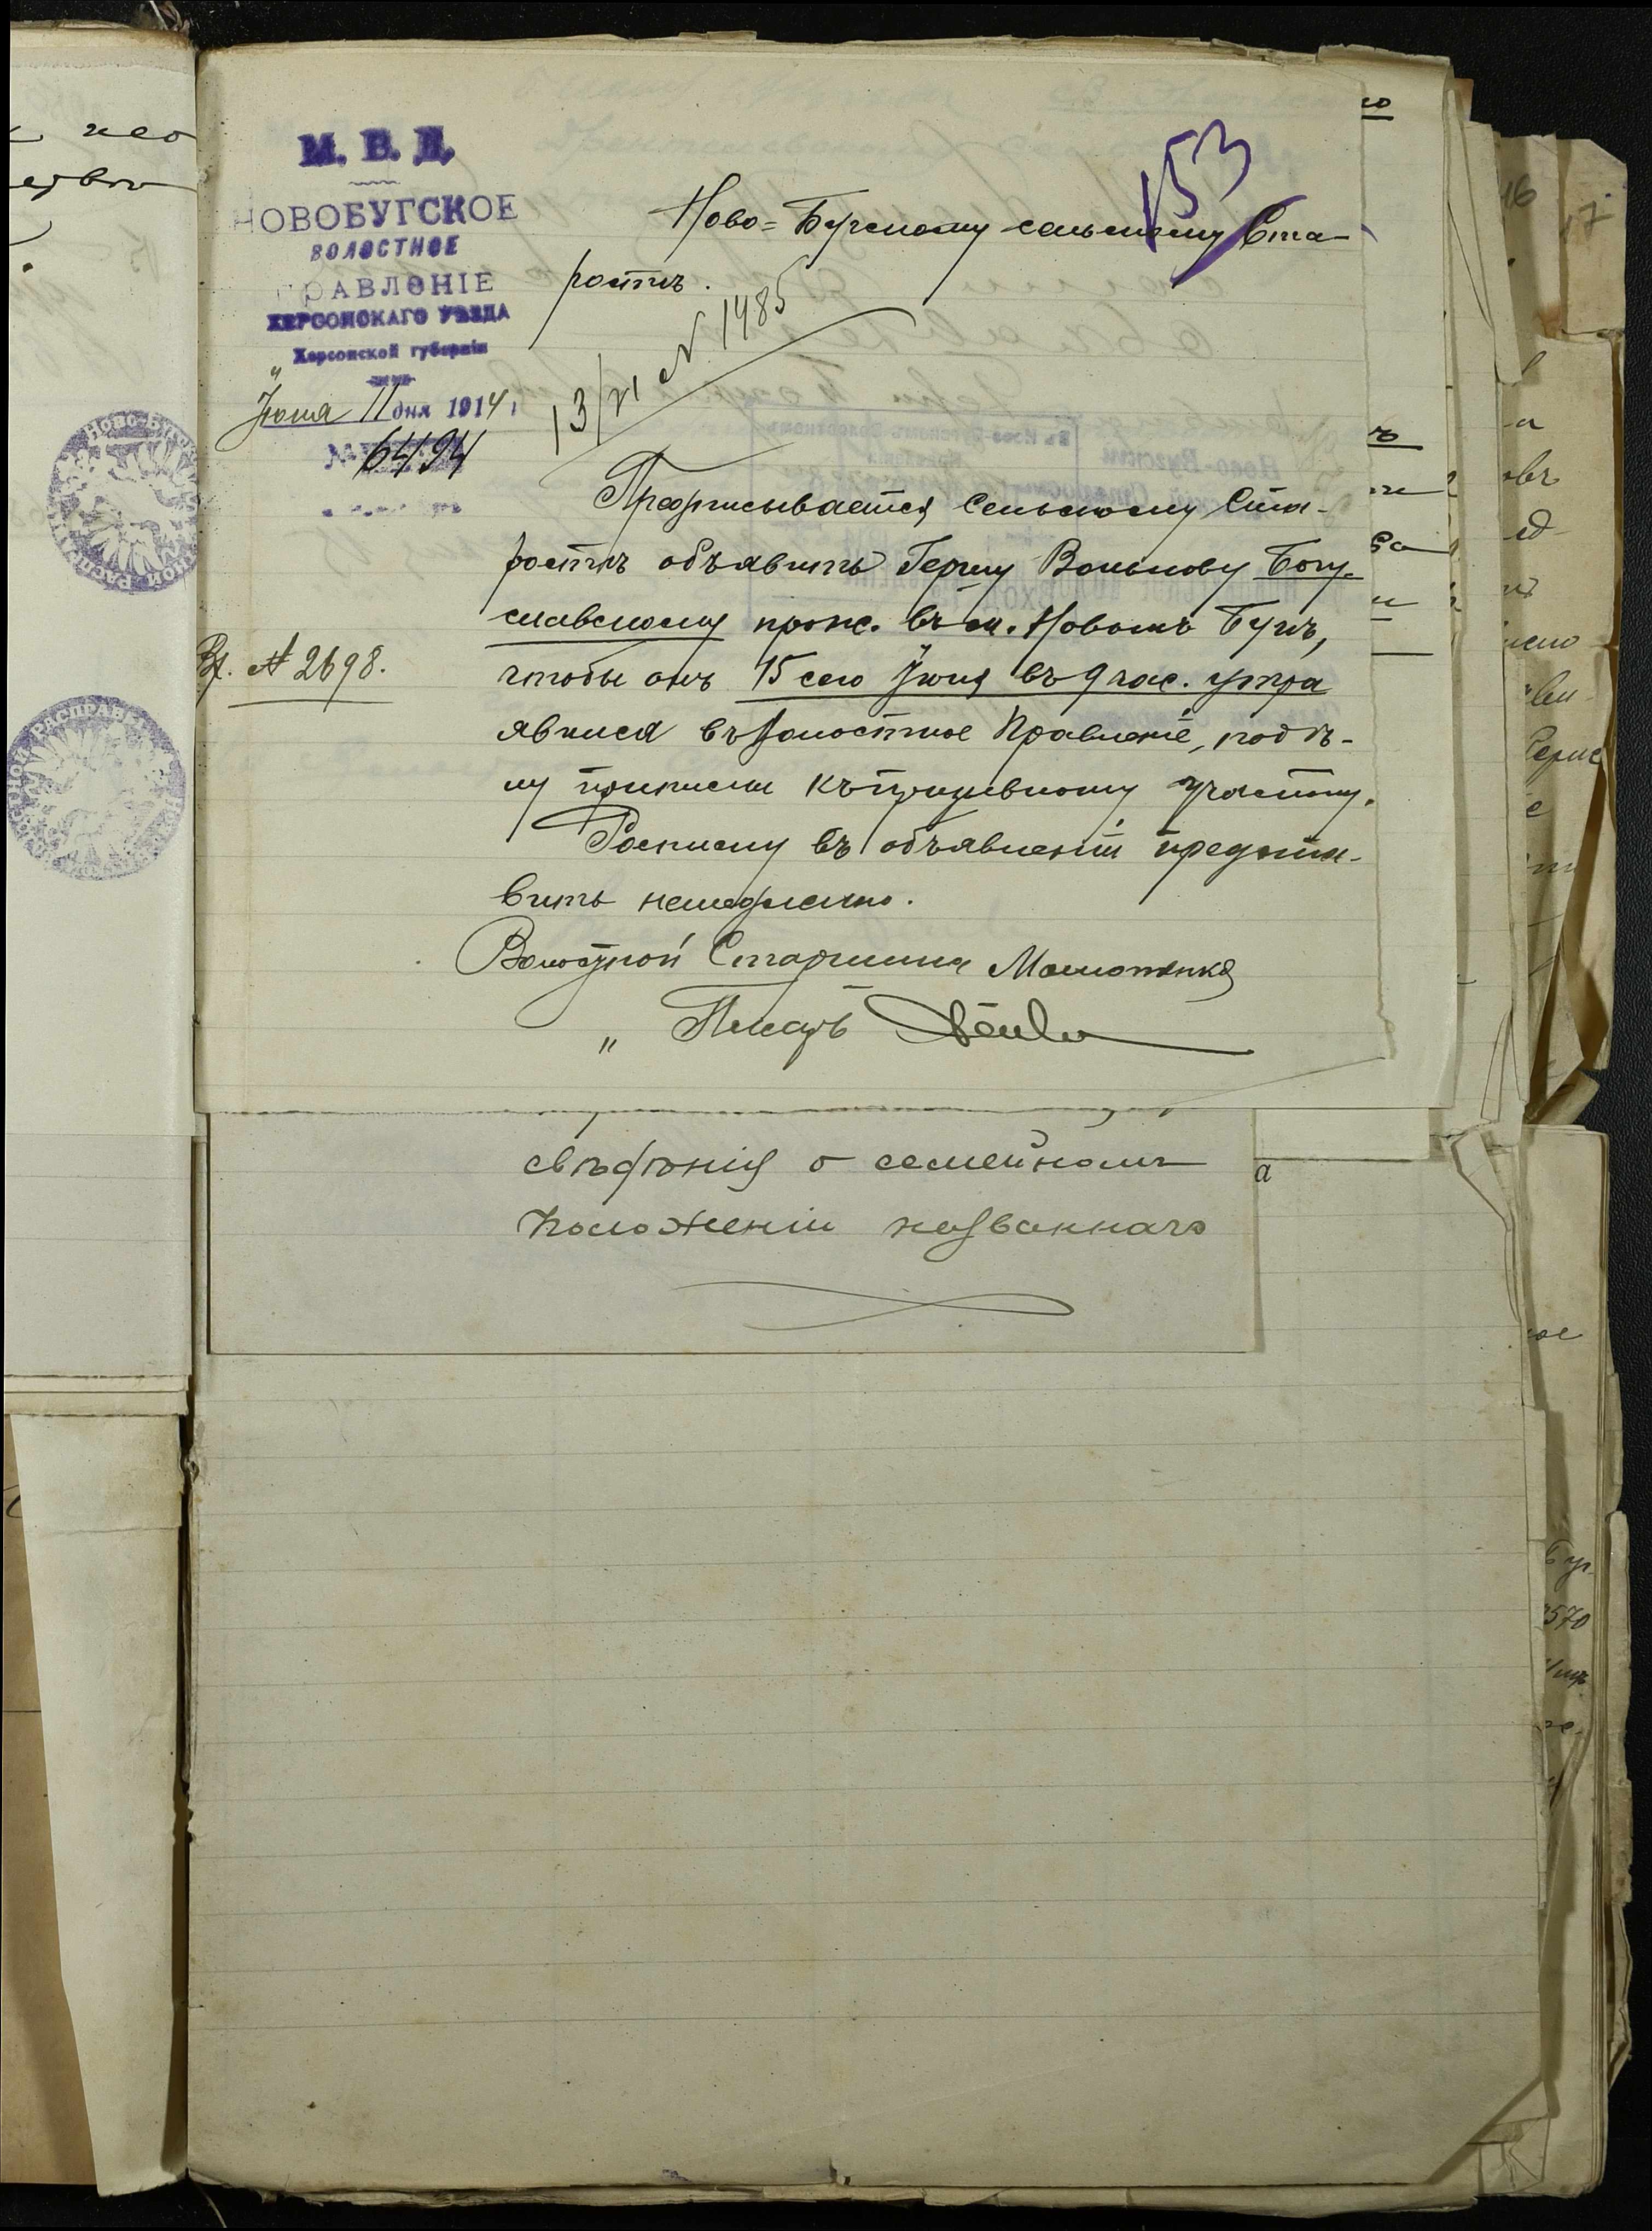 М. В. Д.
НОВОБУГСКОЕ
ВОЛОСТНОЕ
РАВЛЕНІЕ
ХЕРСОНСКАГО УѢЗДА
Херсонской губерніи
Іюня 11 дня 1914 г.
№ 6494
153
Ново-Бугскому сельскому Ста-
ростѣ.
13/VI № 1485
Предписывается Сельскому Ста-
ростѣ объявить Гершу Волькову Богу-
славскому прож. въ м. Новомъ Бугѣ,
чтобы онъ 15 сего Іюня въ 9 час. утра
явился въ Волостное Правленіе, по дѣ-
лу приписки къ призывному участку.
Росписку въ объявленіи предста-
вить немедленно.
Вх. № 2698.
Волостной Старшина
" Писарь
свѣдѣнія о семейномъ
положеніи названнаго
а